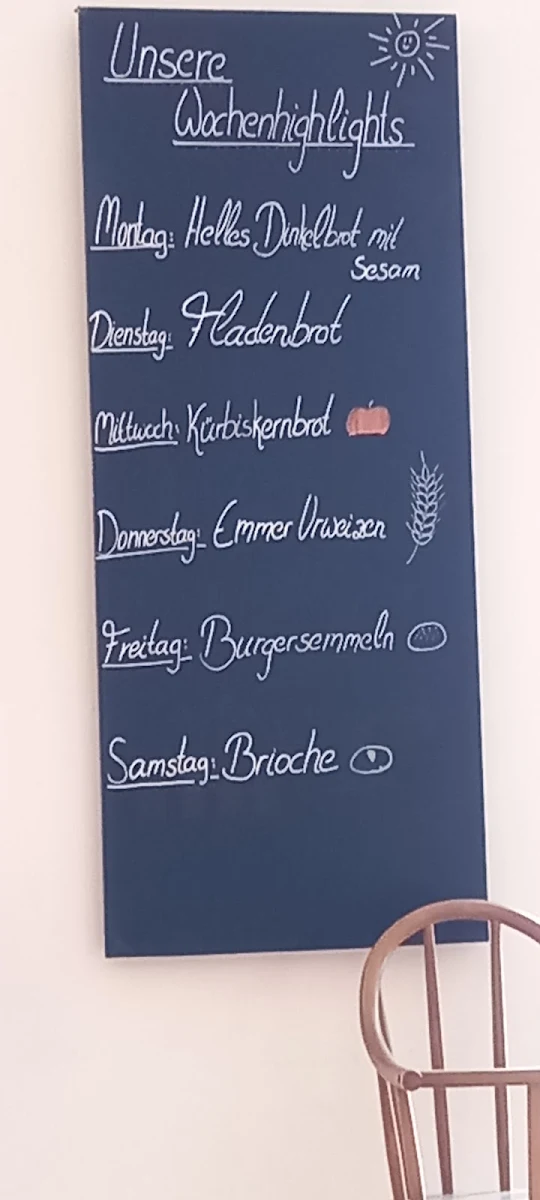 Unsere
Wochenhighlights
Montag: Helles Dinkelbrot mit
Sesam
Dienstag: Fladenbrot
Mittwoch: Kürbiskernbrot
Donnerstag: Emmer Urweizen
Freitag: Burgersemmeln
Samstag: Brioche